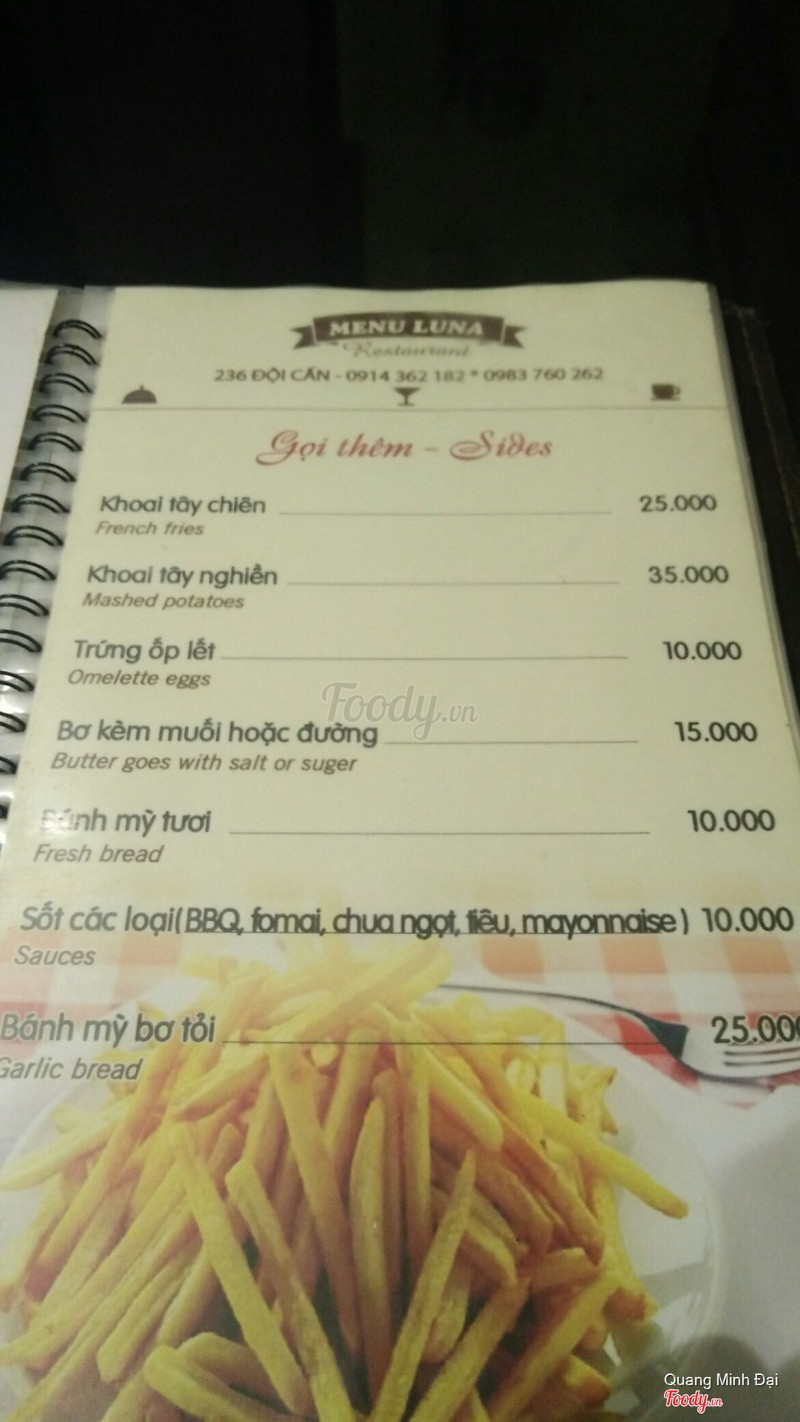 MENU LUNA
Restaurant
236 ĐỘI CẤN - 0914 362 182 * 0983 760 262
Gọi thêm - Sides
Khoai tây chiên 25.000
French fries
Khoai tây nghiền 35.000
Mashed potatoes
Trứng ốp lết 10.000
Omelette eggs
Foody.vn
Bơ kèm muối hoặc đường 15.000
Butter goes with salt or suger
Bánh mỳ tươi 10.000
Fresh bread
Sốt các loại( BBQ, fomai, chua ngọt, tiêu, mayonnaise ) 10.000
Sauces
Bánh mỳ bơ tỏi 25.000
Garlic bread
Quang Minh Đại
Foody.vn